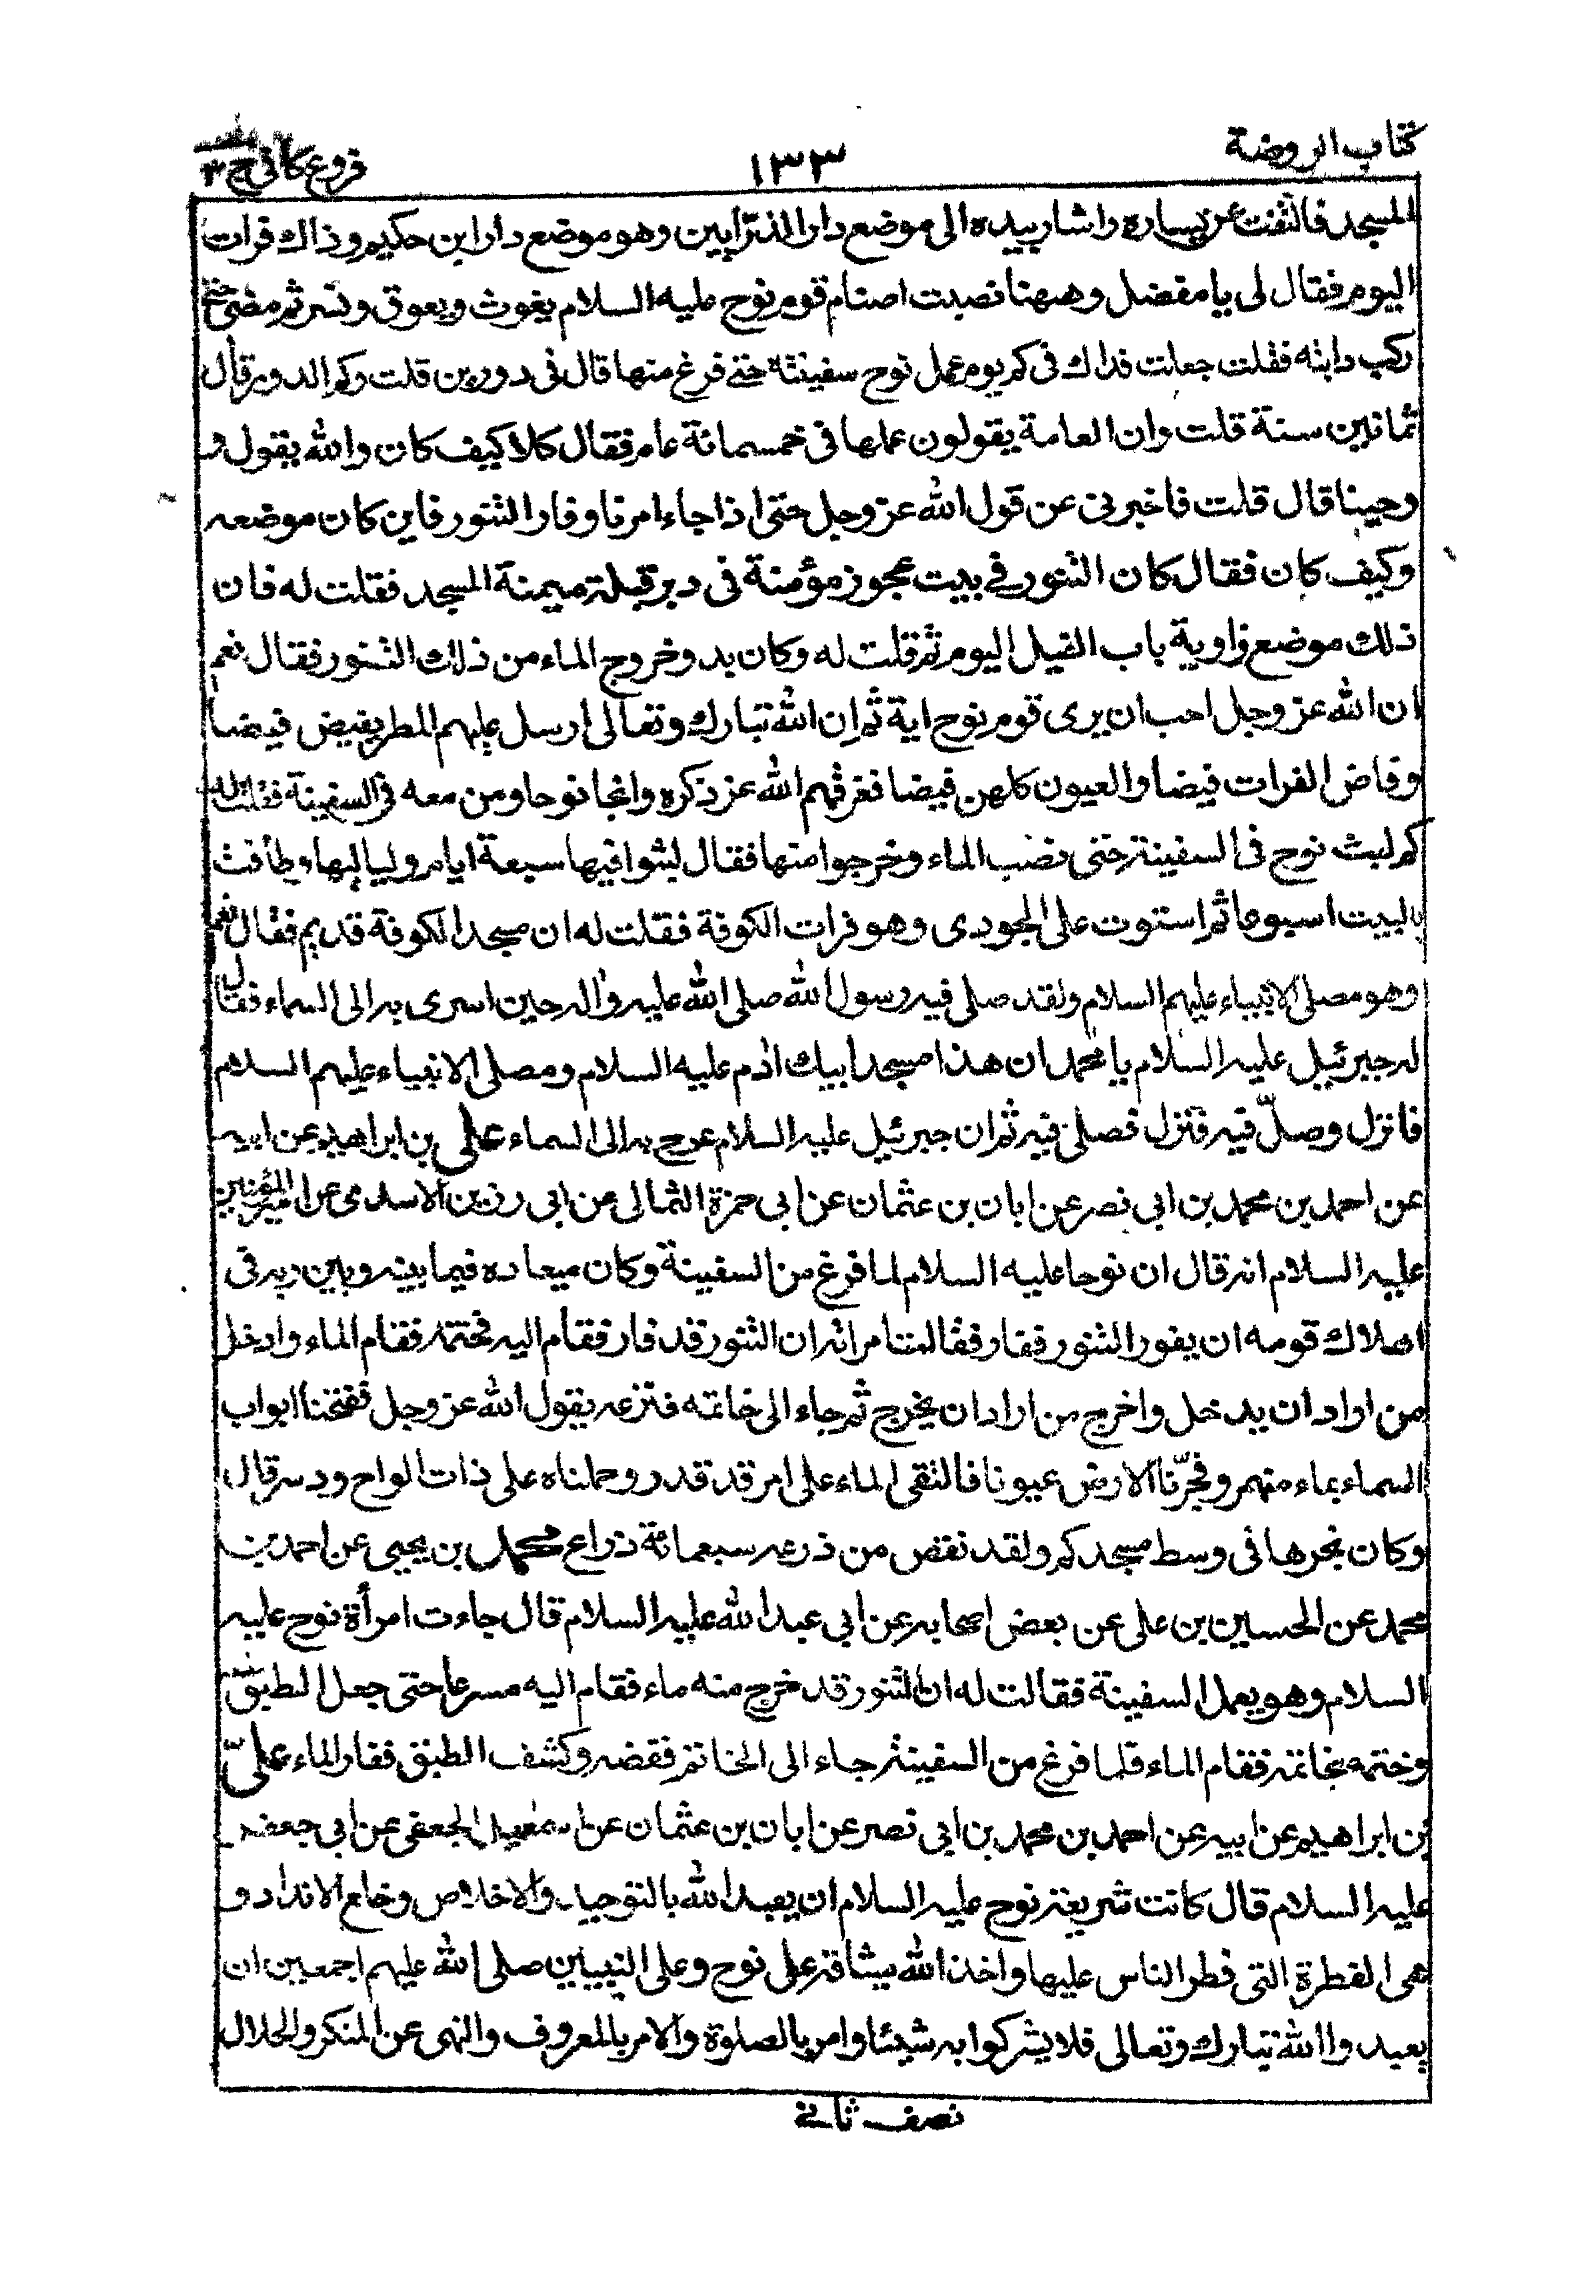 كتاب الروضة
١٣٣
فروع كافى ج ٣
المسجد فالتفت عن يساره واشار بيده الى موضع دار الدارابيين وهو موضع دار ابن حكيم وذاك فرات
اليوم فقال لى يا مفضل وههنا نصبت اصنام قوم نوح عليه السلام يغوث ويعوق ونسر ثم مضى حتى
ركب دابته فقلت جعلت فداك فى كم يوم عمل نوح سفينته حتى فرغ منها قال فى دورين قلت وكم الدور قال
ثمانين سنة قلت وان العامة يقولون عملها فى خمسمائة عام فقال كلا كيف كان والله يقول و
وحينا قال قلت فاخبرنى عن قول الله عز وجل حتى اذا جاء امرنا وفار التنور فاين كان موضعه
وكيف كان فقال كان التنور فى بيت عجوز مؤمنة فى دبر قبلة ميمنة المسجد فقلت له فان
ذلك موضع زاوية باب الفيل اليوم ثم قلت له وكان بدو خروج الماء من ذلك التنور فقال نعم
ان الله عز وجل احب ان يرى قوم نوح اية ثم ان الله تبارك وتعالى ارسل عليهم المطر يفيض فيضا
وفاض الفرات فيضا والعيون كلهن فيضا فغرقهم الله عز ذكره وانجا نوحا ومن معه فى السفينة فقلت له
كم لبث نوح فى السفينة حتى نضب الماء وخرجوا منها فقال لبثوا فيها سبعة ايام ولياليها وطافت
بالبيت اسبوعا ثم استوت على الجودى وهو فرات الكوفة فقلت له ان مسجد الكوفة قديم فقال نعم
وهو مصلى الانبياء عليهم السلام ولقد صلى فيه رسول الله صلى الله عليه واله حين اسرى به الى السماء فقال
له جبرئيل عليه السلام يا محمد ان هذا مسجد ابيك ادم عليه السلام ومصلى الانبياء عليهم السلام
فانزل وصلّ فيه فنزل فصلى فيه ثم ان جبرئيل عليه السلام عرج به الى السماء على بن ابراهيم عن ابيه
عن احمد بن محمد بن ابى نصر عن ابان بن عثمان عن ابى حمزة الثمالى عن ابى رزين الاسدى عن امير المؤمنين
عليه السلام انه قال ان نوحا عليه السلام لما فرغ من السفينة وكان ميعاده فيما بينه وبين ربه فى
اهلاك قومه ان يفور التنور ففار فقالت امراته ان التنور قد فار فقام اليه فختمه فقام الماء وادخل
من اراد ان يدخل واخرج من اراد ان يخرج ثم جاء الى خاتمه فنزعه يقول الله عز وجل ففتحنا ابواب
السماء بماء منهمر وفجّرنا الارض عيونا فالتقى الماء على امر قد قدر وحملناه على ذات الواح ودسر قال
وكان نجرها فى وسط مسجدكم ولقد نقص من ذرعه سبعمائة ذراع محمد بن يحيى عن احمد بن
محمد عن الحسين بن على عن بعض اصحابه عن ابى عبد الله عليه السلام قال جاءت امرأة نوح عليه
السلام وهو يعمل السفينة فقالت له ان التنور قد خرج منه ماء فقام اليه مسرعا حتى جعل الطبق عليه
وختمه بخاتمه فقام الماء فلما فرغ من السفينة جاء الى الخاتم ففضه وكشف الطبق ففار الماء علىّ
بن ابراهيم عن ابيه عن احمد بن محمد بن ابى نصر عن ابان بن عثمان عن اسمعيل الجعفى عن ابى جعفر
عليه السلام قال كانت شريعة نوح عليه السلام ان يعبد الله بالتوحيد والاخلاص وخلع الانداد و
هى الفطرة التى فطر الناس عليها واخذ الله ميثاقه على نوح وعلى النبيين صلى الله عليهم اجمعين ان
يعبدوا الله تبارك وتعالى فلا يشركوا به شيئا وامر بالصلوة والامر بالمعروف والنهى عن المنكر والحلال
نصف ثانى